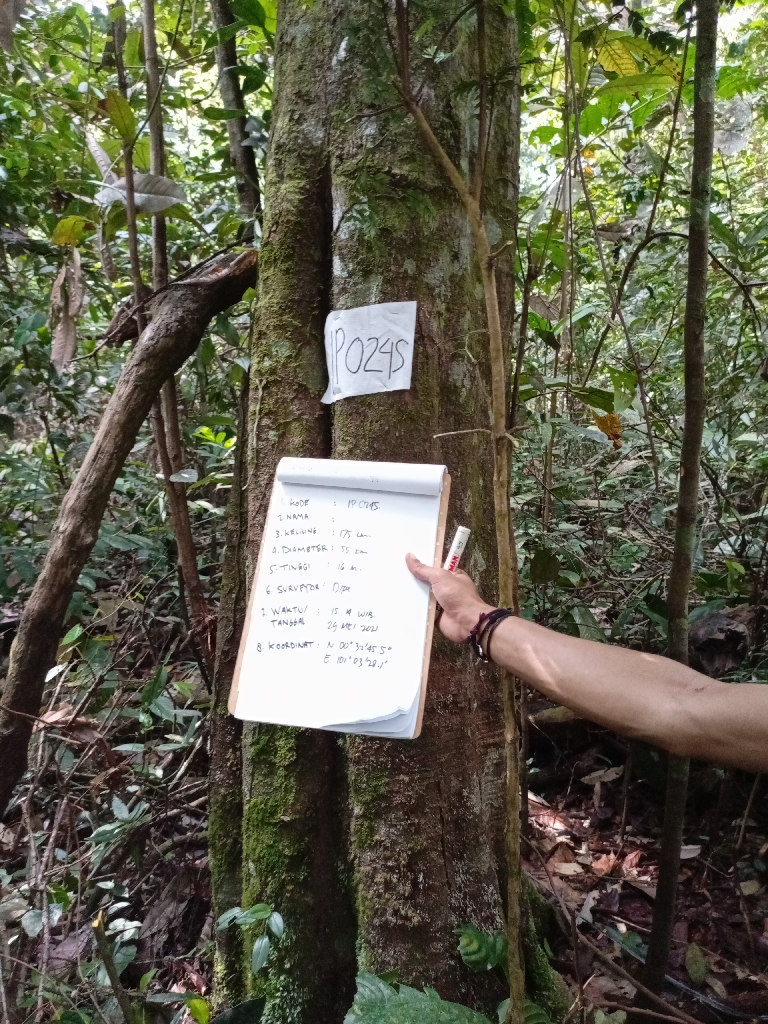 IP0245
1. KODE : IP 0245.
2. NAMA :
3. KELILING : 175 cm.
4. DIAMETER : 55 cm
5. TINGGI : 16 m.
6. SURVEYOR :
7. WAKTU / : 15. WIB
TANGGAL 29 MEI 2021
8. KOORDINAT : N 00° 32' 45.5"
E 101° 03' 28.1"
MAN